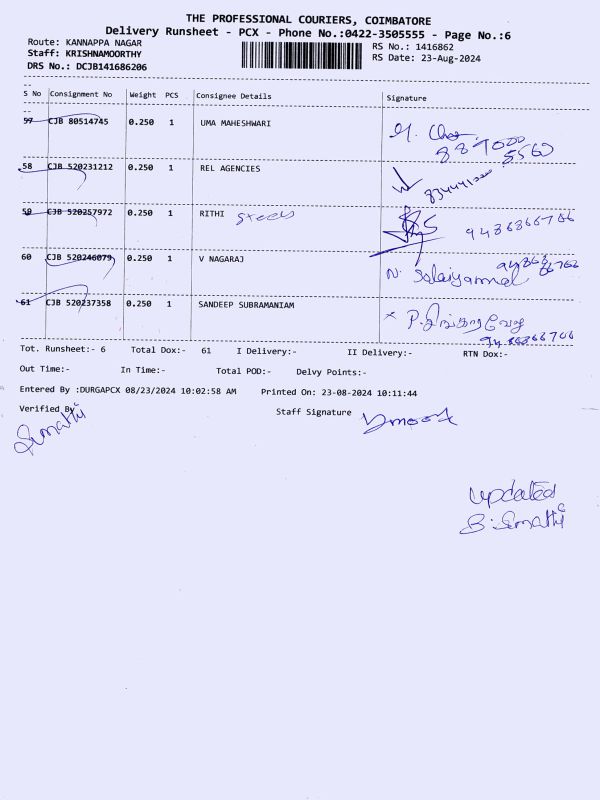 THE PROFESSIONAL COURIERS, COIMBATORE
Delivery Runsheet - PCX - Phone No.:0422-3505555 - Page No.:6
Route: KANNAPPA NAGAR
Staff: KRISHNAMOORTHY
DRS No.: DCJB141686206
RS No.: 1416862
RS Date: 23-Aug-2024
S No Consignment No Weight PCS Consignee Details Signature
57 CJB 80514745 0.250 1 UMA MAHESHWARI
58 CJB 520231212 0.250 1 REL AGENCIES
59 CJB 520257972 0.250 1 RITHI steels 9486866706
60 CJB 520246079 0.250 1 V NAGARAJ N.
61 CJB 520237358 0.250 1 SANDEEP SUBRAMANIAM
Tot. Runsheet:- 6 Total Dox:- 61 I Delivery:- II Delivery:- RTN Dox:-
Out Time:- In Time:- Total POD:- Delvy Points:-
Entered By :DURGAPCX 08/23/2024 10:02:58 AM Printed On: 23-08-2024 10:11:44
Verified By Staff Signature
updated